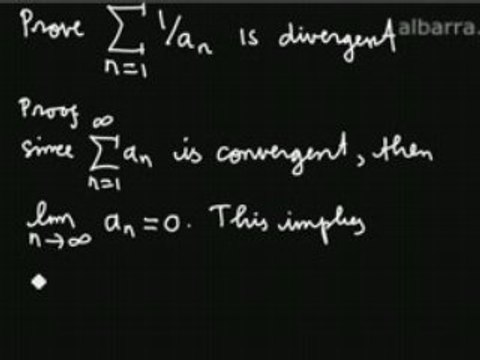 Prove ∑ 1/aₙ is divergent albarra.
n=1
Proof
since ∑ aₙ is convergent, then
∞
n=1
lim aₙ = 0. This implies
n→∞